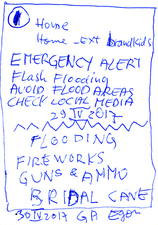 1 Home
Home_ext brandkids
EMERGENCY ALERT
Flash Flooding
AVOID FLOOD AREAS
CHECK LOCAL MEDIA
29 IV 2017
FLOODING
FIREWORKS
GUNS & AMMO
BRIDAL CAVE
30 IV 2017 GA Egon